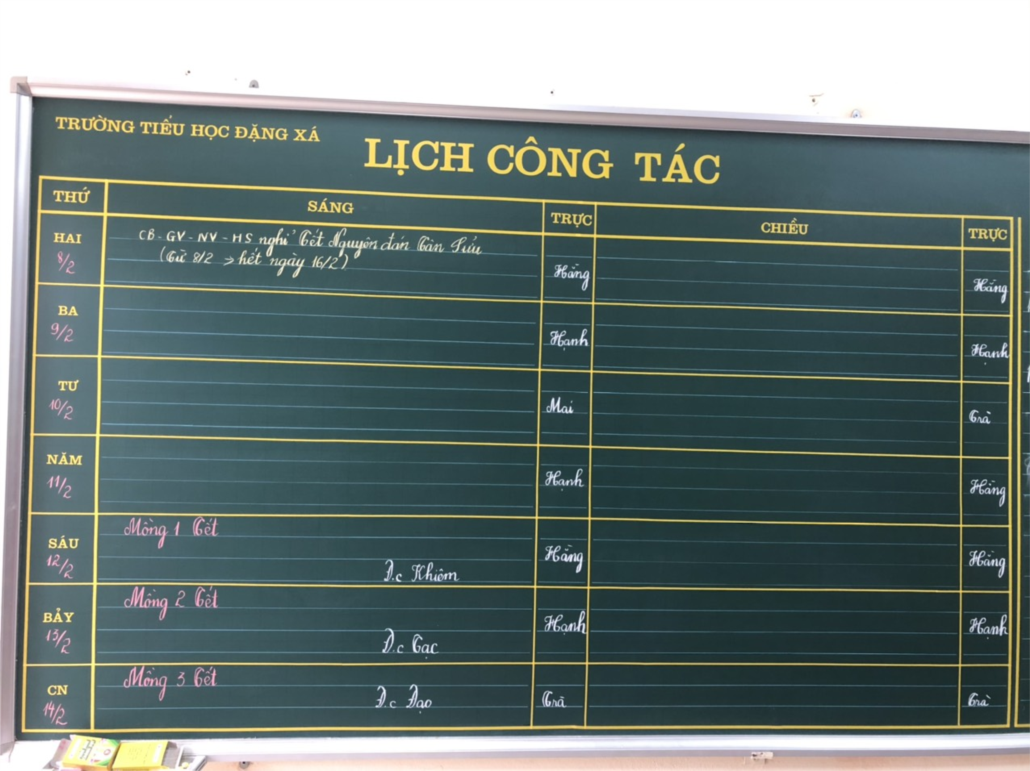 TRƯỜNG TIỂU HỌC ĐẶNG XÁ
LỊCH CÔNG TÁC
THỨ SÁNG TRỰC CHIỀU TRỰC
HAI CB-GV-NV-HS nghỉ Tết Nguyên đán Tân Sửu
8/2 (Từ 8/2 → hết ngày 16/2) Hằng Hằng
BA
9/2 Hạnh Hạnh
TƯ
10/2 Mai Trà
NĂM
11/2 Hạnh Hằng
Mồng 1 Tết
SÁU Hằng Hằng
12/2 Đ.c Khiêm
Mồng 2 Tết
BẢY Hạnh Hạnh
13/2 Đ.c Tạc
Mồng 3 Tết
CN Đ.c Đạo Trà Trà
14/2